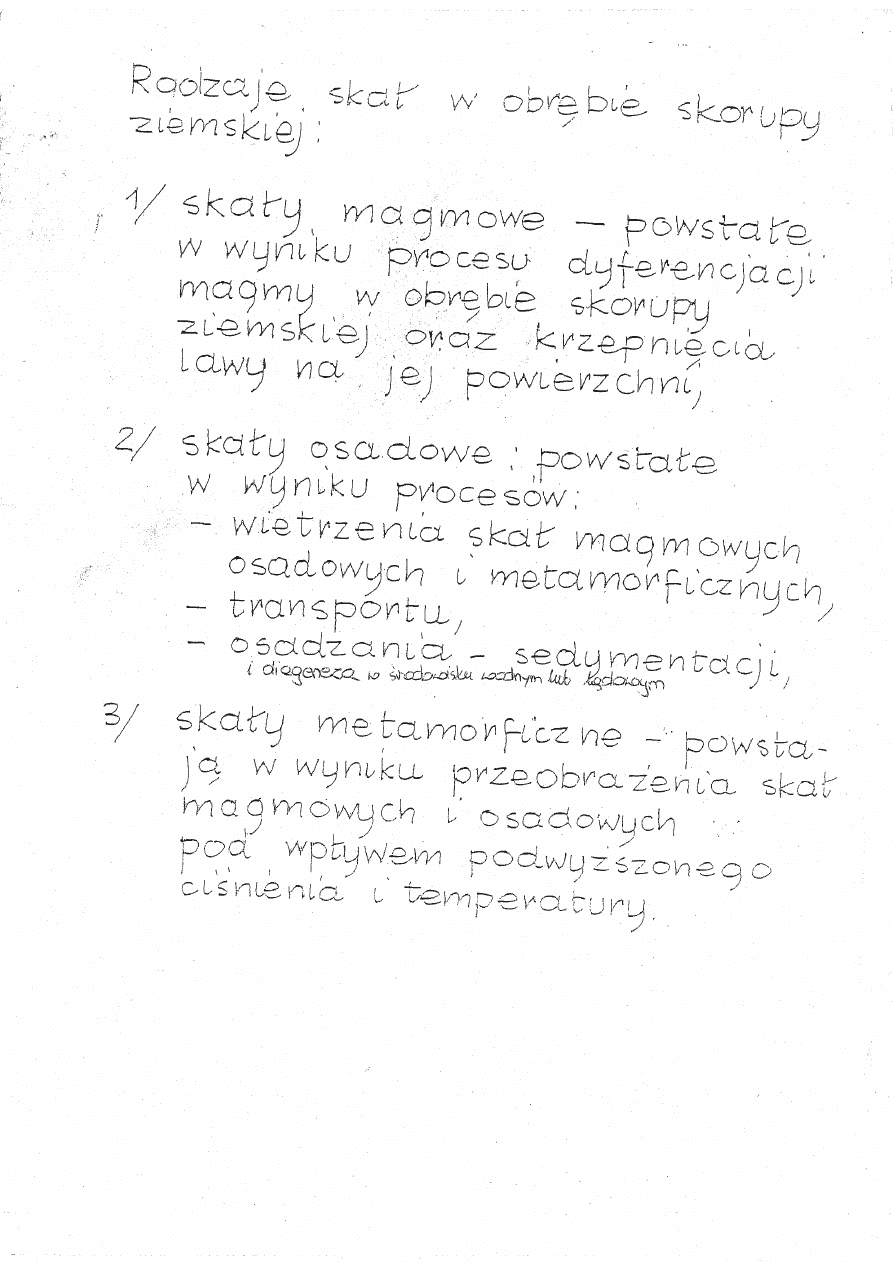 Rodzaje skał w obrębie skorupy
ziemskiej:
1/ skały magmowe – powstałe
w wyniku procesu dyferencjacji
magmy w obrębie skorupy
ziemskiej oraz krzepnięcia
lawy na jej powierzchni,
2/ skały osadowe : powstałe
w wyniku procesów:
– wietrzenia skał magmowych
osadowych i metamorficznych,
– transportu,
– osadzania – sedymentacji,
i diageneza w środowisku wodnym lub lądowym
3/ skały metamorficzne – powsta-
ją w wyniku przeobrażenia skał
magmowych i osadowych
pod wpływem podwyższonego
ciśnienia i temperatury.